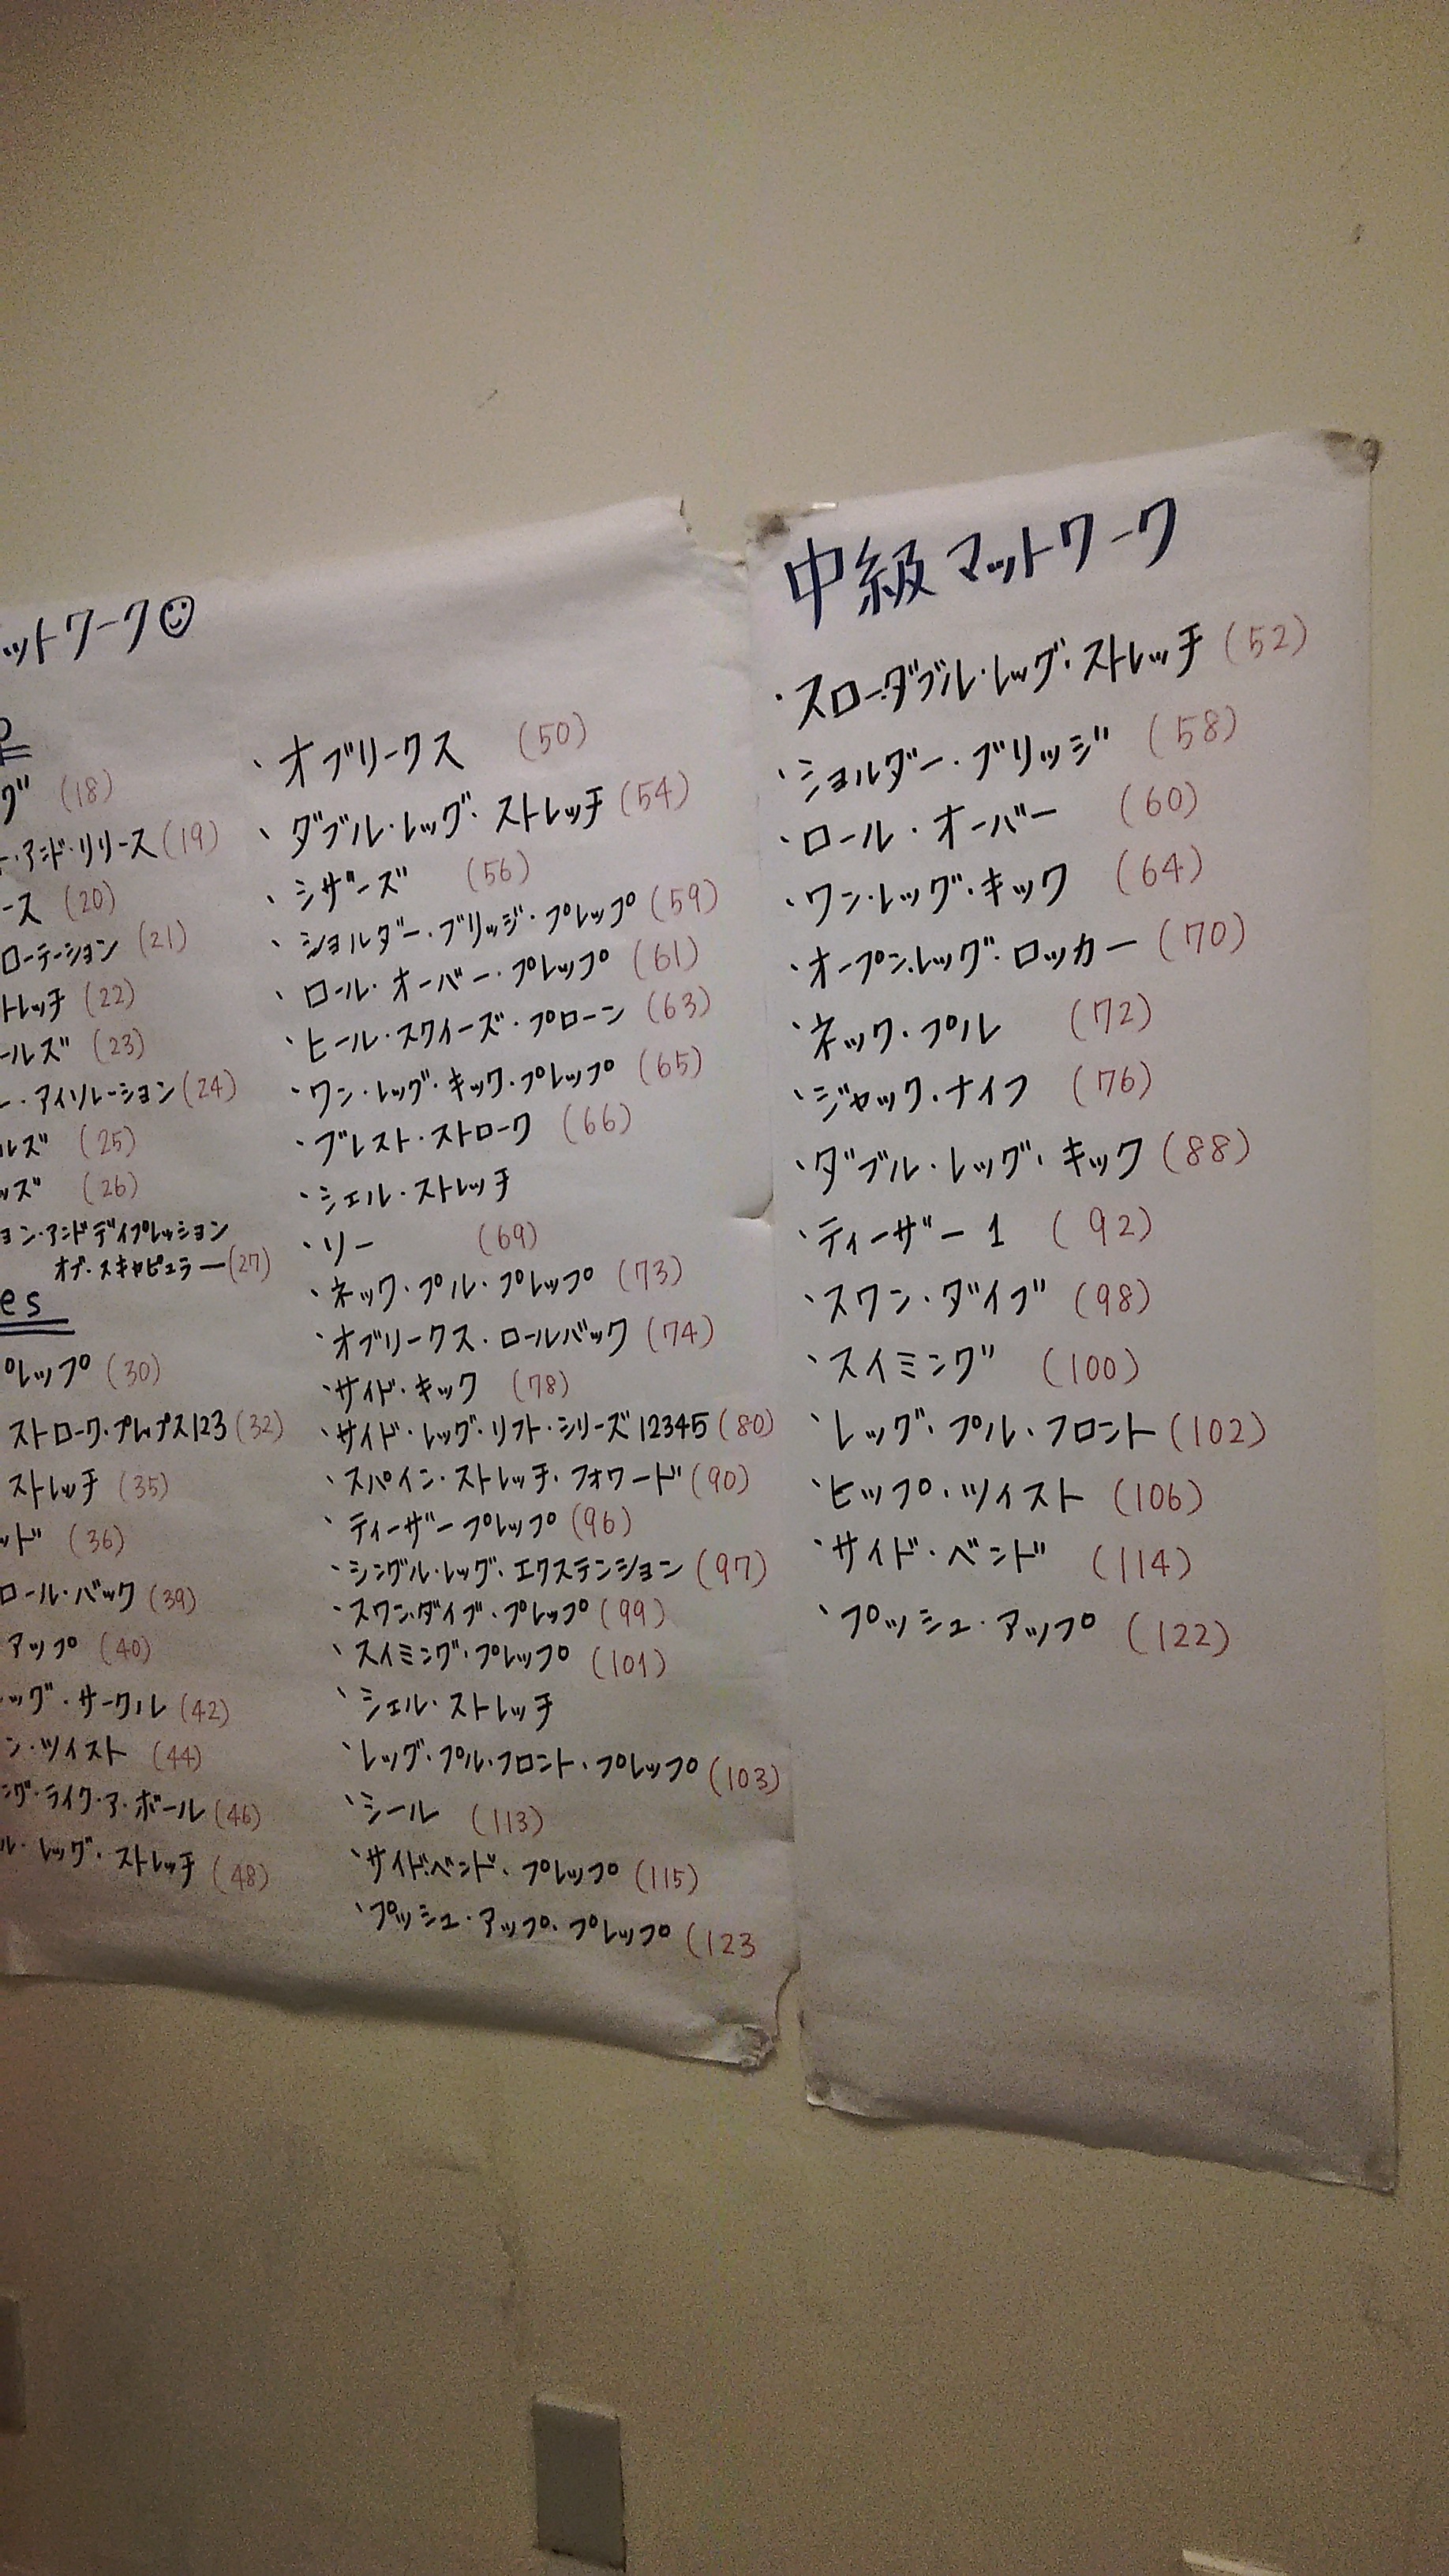 ットワーク
グ (18)
ト・アンド・リリース (19)
ース (20)
ローテーション (21)
トレッチ (22)
ールズ (23)
ー・アイソレーション (24)
ルズ (25)
ッズ (26)
ョン・アンドディプレッション
オブ・スキャピュラー (27)
es
プレップ (30)
ストローク・プレップス123 (32)
ストレッチ (35)
ッド (36)
ロール・バック (39)
アップ (40)
ッグ・サークル (42)
ン・ツイスト (44)
ング・ライク・ア・ボール (46)
ル・レッグ・ストレッチ (48)
、オブリークス (50)
、ダブル・レッグ・ストレッチ (54)
、シザーズ (56)
、ショルダー・ブリッジ・プレップ (59)
、ロール・オーバー・プレップ (61)
、ヒール・スクイーズ・プローン (63)
、ワン・レッグ・キック・プレップ (65)
、ブレスト・ストローク (66)
、シェル・ストレッチ
、ソー (69)
、ネック・プル・プレップ (73)
、オブリークス・ロールバック (74)
、サイド・キック (78)
、サイド・レッグ・リフト・シリーズ 12345 (80)
、スパイン・ストレッチ・フォワード (90)
、ティーザープレップ (96)
、シングル・レッグ・エクステンション (97)
、スワン・ダイブ・プレップ (99)
、スイミング・プレップ (101)
、シェル・ストレッチ
、レッグ・プル・フロント・プレップ (103)
、シール (113)
、サイド・ベンド・プレップ (115)
、プッシュ・アップ・プレップ (123
中級マットワーク
・スローダブル・レッグ・ストレッチ (52)
、ショルダー・ブリッジ (58)
、ロール・オーバー (60)
、ワン・レッグ・キック (64)
、オープン・レッグ・ロッカー (70)
、ネック・プル (72)
、ジャック・ナイフ (76)
、ダブル・レッグ・キック (88)
、ティーザー 1 (92)
、スワン・ダイブ (98)
、スイミング (100)
、レッグ・プル・フロント (102)
、ヒップ・ツイスト (106)
、サイド・ベンド (114)
、プッシュ・アップ (122)